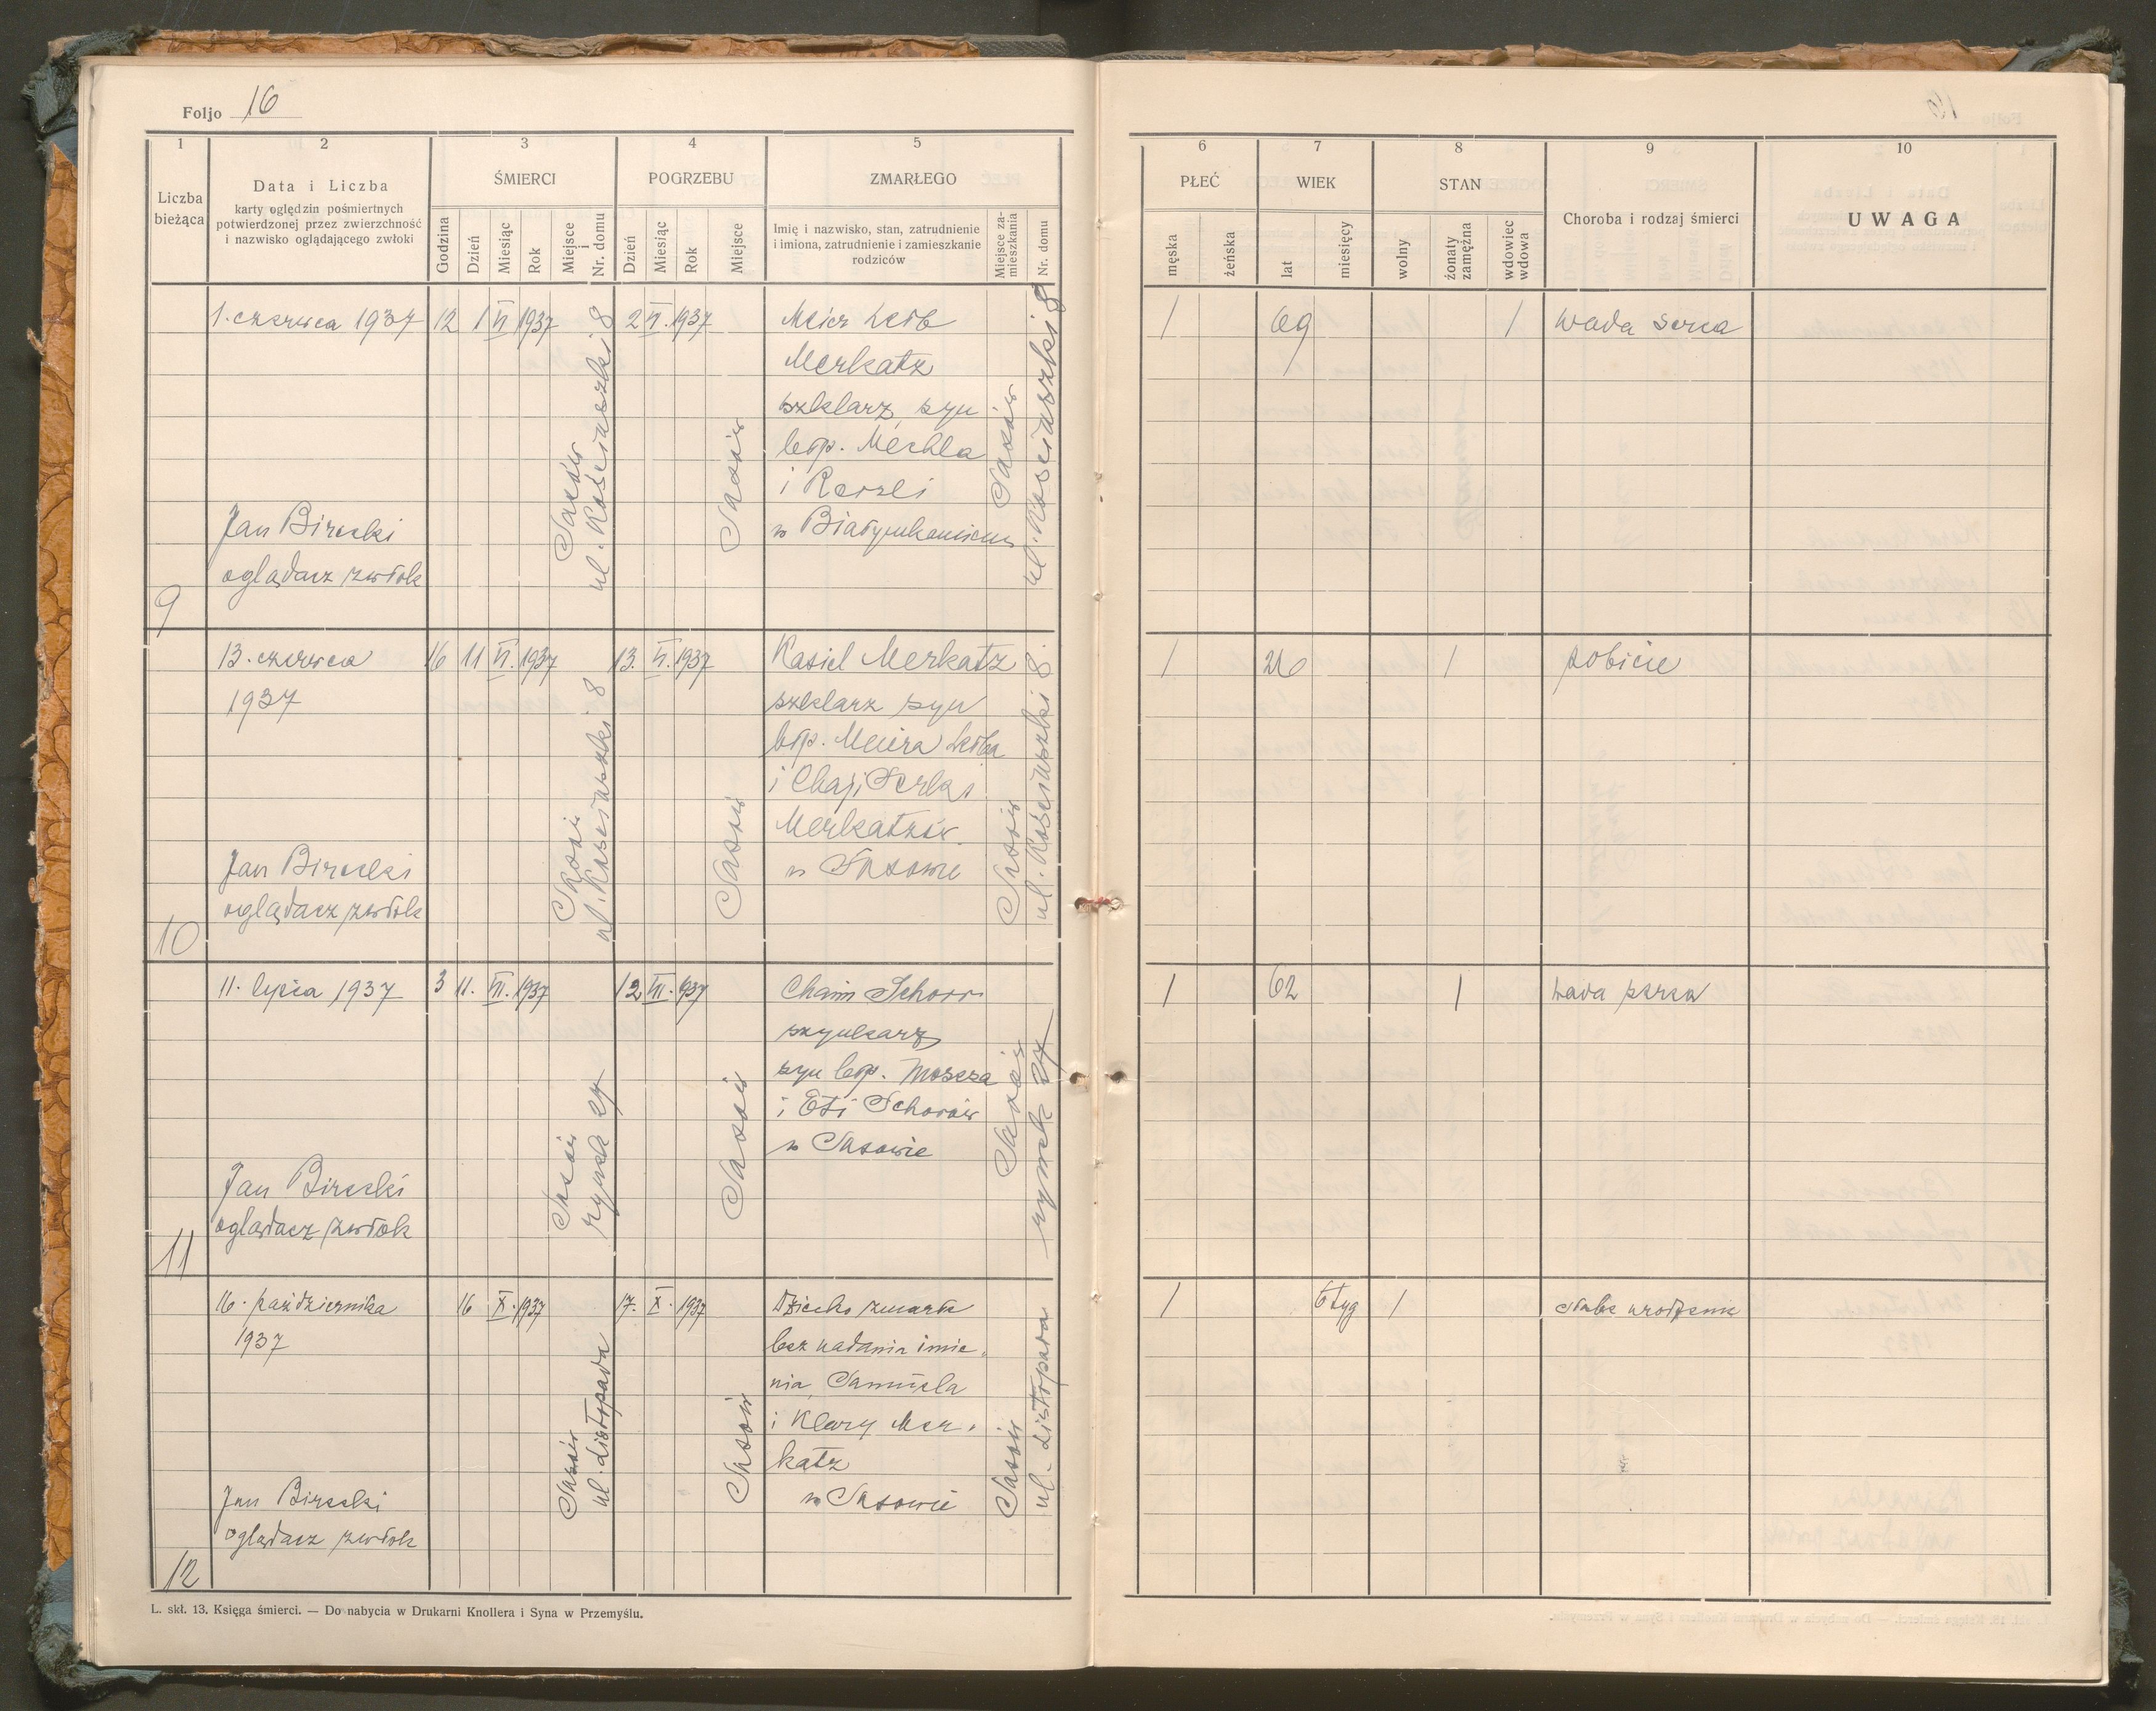 Foljo 16
1
2
3
4
5
Liczba bieżąca
Data i Liczba
karty oględzin pośmiertnych
potwierdzonej przez zwierzchność
i nazwisko oglądającego zwłoki
ŚMIERCI
Godzina
Dzień
Miesiąc
Rok
Miejsce i Nr. domu
POGRZEBU
Dzień
Miesiąc
Rok
Miejsce
ZMARŁEGO
Imię i nazwisko, stan, zatrudnienie
i imiona, zatrudnienie i zamieszkanie
rodziców
Miejsce za-
mieszkania
Nr. domu
6
7
8
9
10
PŁEĆ
męska
żeńska
WIEK
lat
miesięcy
STAN
wolny
żonaty
zamężna
wdowiec
wdowa
Choroba i rodzaj śmierci
UWAGA
9
1. czerwca 1937
Jan Birecki
oglądacz zwłok
12 1 VI 1937
Sasów
ul. Kościuszki 8
2 VI. 1937
Sasów
Meier Leib
Merkatz
szklarz, syn
łop. Mechla
i Reizli
w Białymkamieniu
Sasów
ul. Kościuszki 8
1 69 1 wada serca
10
13. czerwca
1937
Jan Birecki
oglądacz zwłok
16 11 VI. 1937
Sasów
ul. Kościuszki 8
13. VI. 1937
Sasów
Kasiel Merkatz
szklarz syn
łop. Meiera Leiba
i Chaji Serki
Merkatzów
w Sasowie
Sasów
ul. Kościuszki 8.
1 26 1 pobicie
11
11. lipca 1937
Jan Birecki
oglądacz zwłok
3 11. VII. 1937
Sasów
rynek 27
12 VII. 937
Sasów
Chaim Schorr
szynkarz
syn łop. Moszesa
i Eti Schorów
w Sasowie
Sasów
rynek 27
1 62 1 wada serca
12
16. października
1937
Jan Birecki
oglądacz zwłok
16 X. 1937
Sasów
ul. Listopada
17. X. 1937
Sasów
Dziecko zmarłe
bez nadania imie-
nia, Samuela
i Klary Mer-
katz
w Sasowie
Sasów
ul. Listopada
1 6 tyg 1 słabe urodzenie
L. skł. 13. Księga śmierci. — Do nabycia w Drukarni Knollera i Syna w Przemyślu.